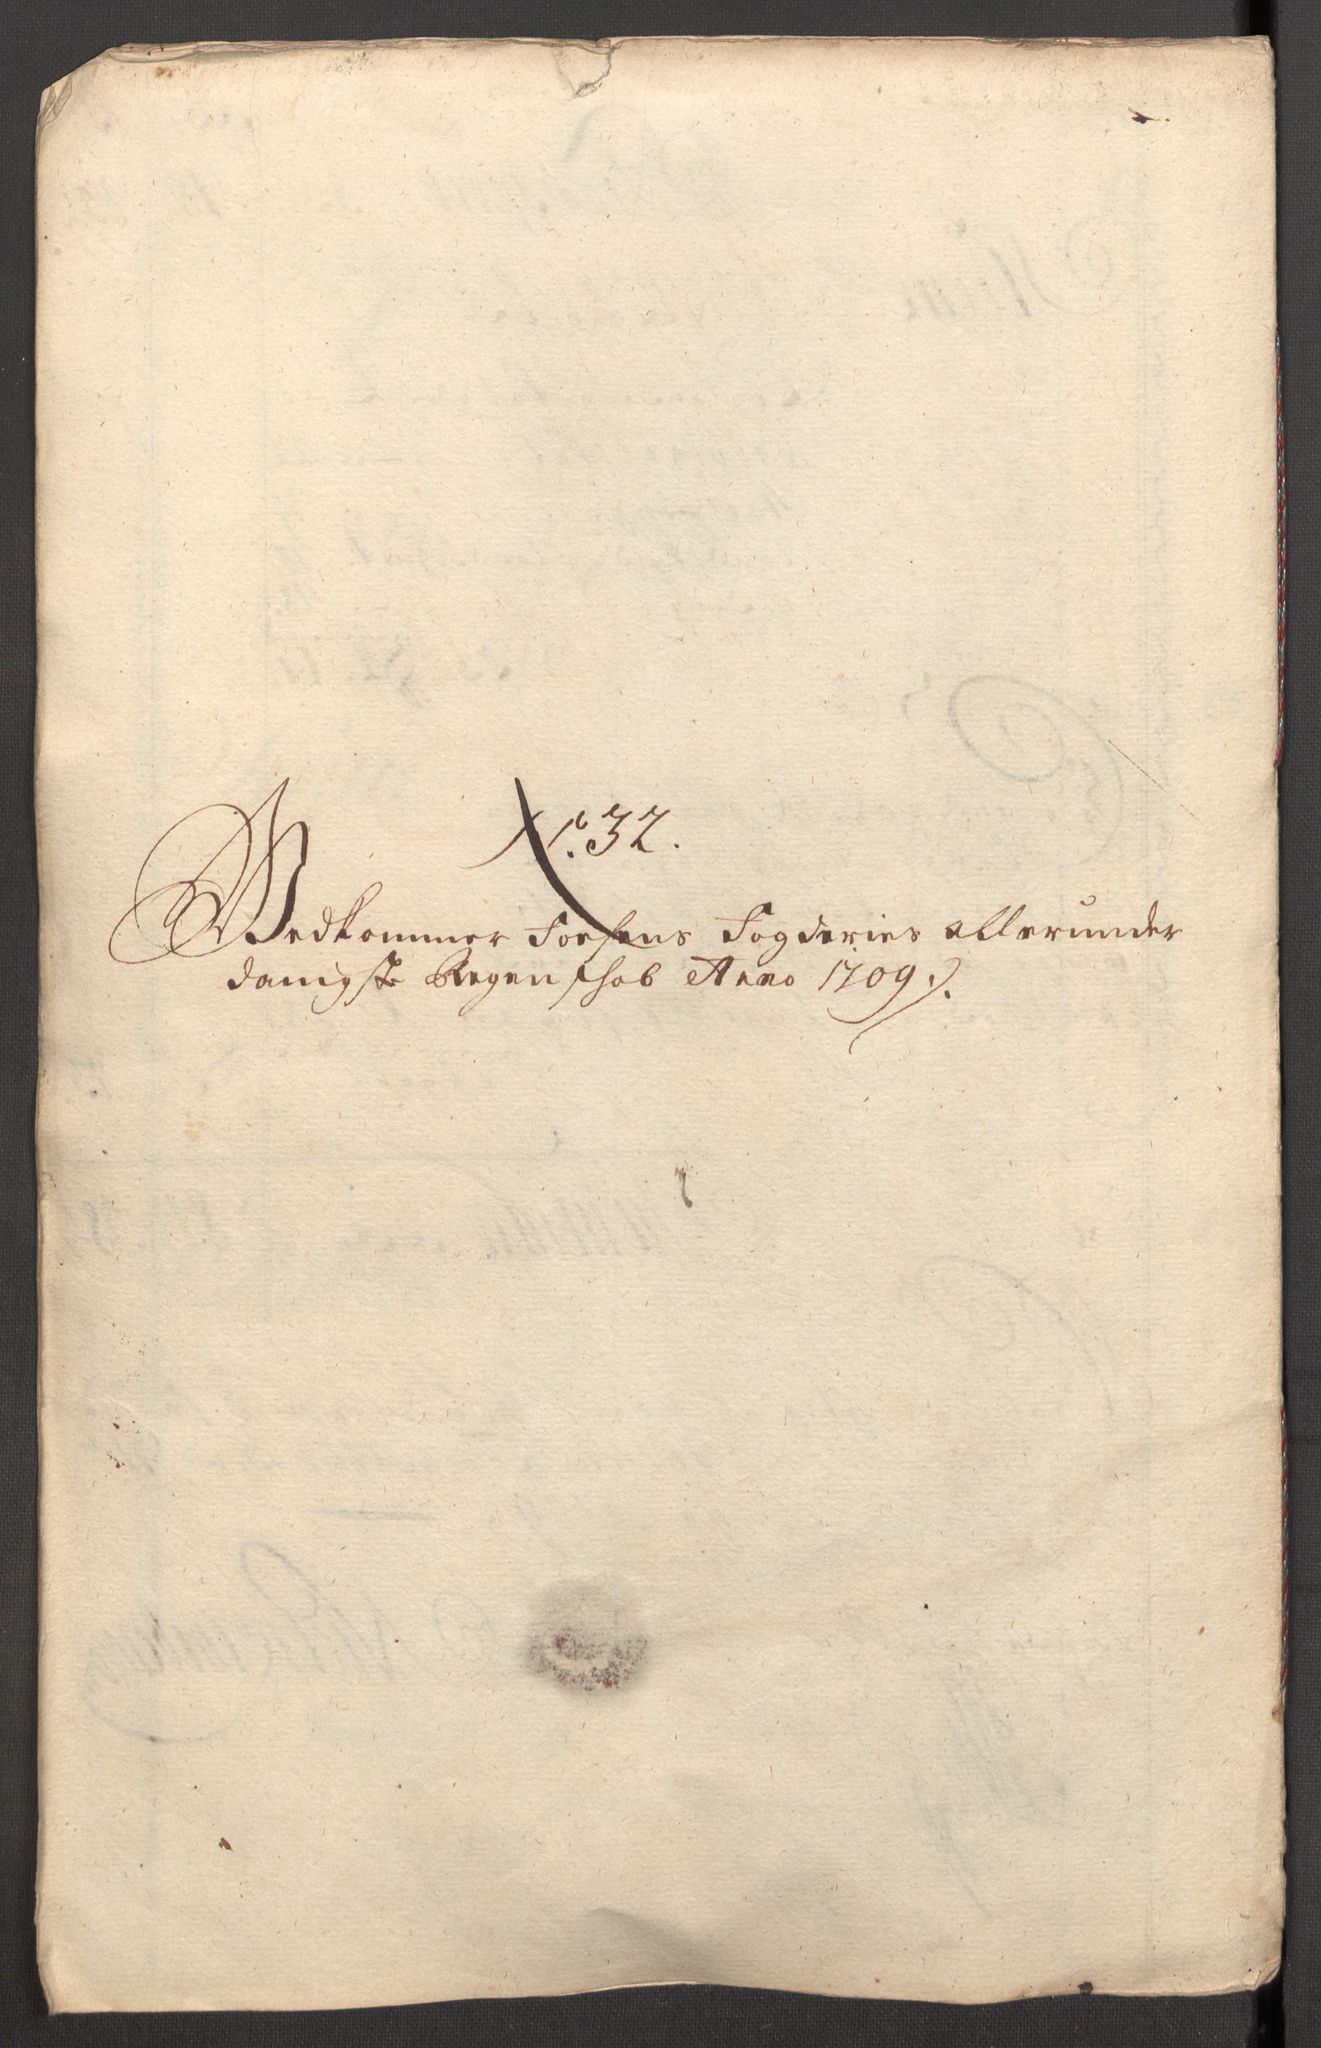 No. 32.
Vedkommer Foesens Fogderies allerunder
danigste Regenskab Anno 1709.